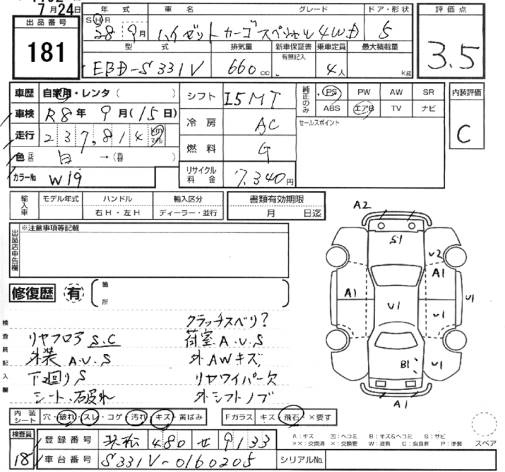 7月24日
出品番号
181
年式 車名 グレード ドア・形状 評価点
S H R 28年9月 ハイゼットカーゴスペシャル4WD 5
3.5
型式 排気量 新車保証書 乗車定員 最大積載量
EBD-S331V 660cc 有無記入 4人 kg
車歴 自家用・レンタ( )
車検 R8年9月(15日)
走行 237,814 km
色 白→( )
カラーNo W19
シフト I5MT
冷房 AC
燃料 G
リサイクル料金 7,340円
純正のみ PS PW AW SR
ABS エアB TV ナビ
セールスポイント
内装評価
C
輸入車 モデル年式 ハンドル 輸入区分
右H・左H ディーラー・並行
書類有効期限
月 日迄
出品店申告欄
※注意事項等記載
修復歴 有 箇所
検査員記入欄
クラッチスベリ?
リヤフロア S.C 荷室A.U.S
外装A.U.S 外AWキズ
下廻りS リヤワイパー欠
シート、破れ 外シフトノブ
A2
S1
U2
A1 A1
U1 U1
B1
A1
内装シート 穴・破れ・スレ・コゲ 汚れ・キズ・黄ばみ
Fガラス キズ・飛石・×要す
A:キズ U:ヘコミ B:キズ&ヘコミ S:サビ
スペア
検査員
18
登録番号 浜松480せ9133
車台番号 S331V-0160205
シリアルNo.